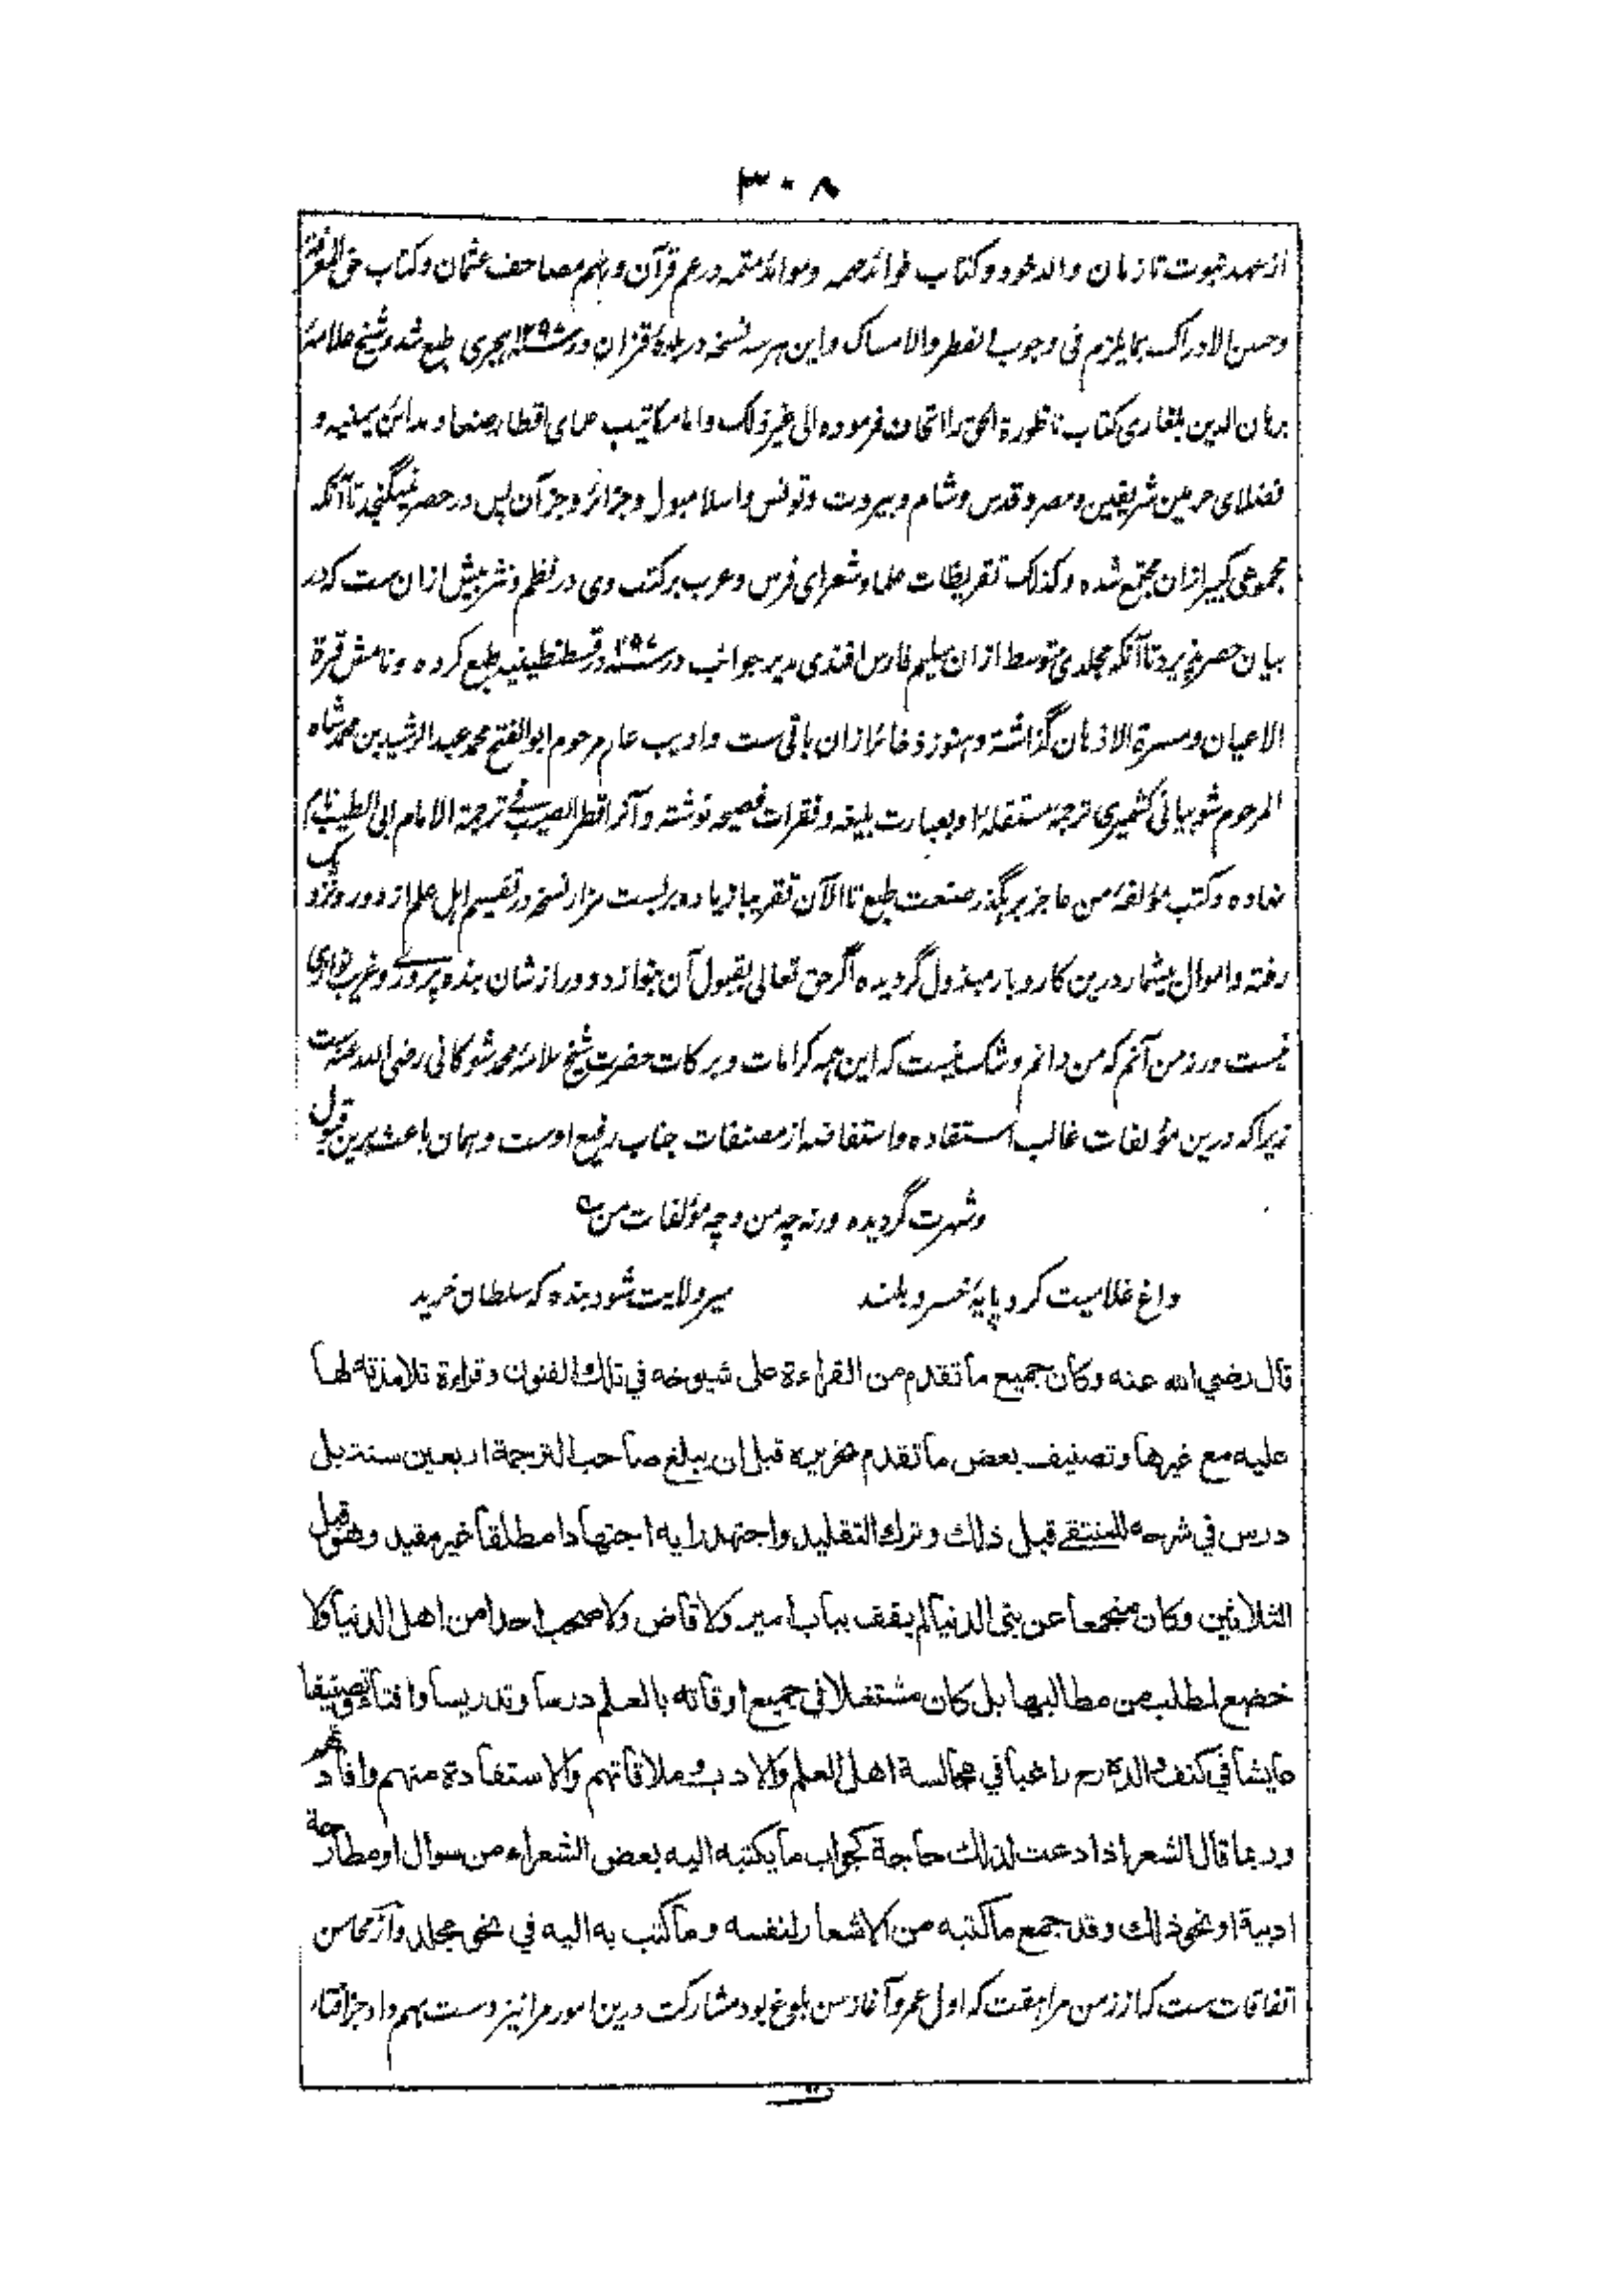 ۳۰۸
از عهد نبوت تا زمان والد خود و کتاب فوائد مهمه وموائد متمه در علم قرآن و فهم مصاحف عثمان و کتاب حق المعرفة
وحسن الادراک بما یلزم فی وجوب الفطر والامساک و این هر سه نسخه در بلدۀ قزان در سنه ۱۲۹۸ هجری طبع شد و شیخ علامۀ
برهان الدین بلغاری کتاب ناظورة الحق را اتحاف فرموده الی غیر ذلک واما مکاتیب علمای اقطار صنعا و مدائن یمنیه و
فضلای حرمین شریفین و مصر و قدس و شام و بیروت و تونس و اسلامبول و جزائر و جز آن پس در حصر نمیگنجد تا آنکه
مجموعی کبیر ازان مجتمع شده و کذلک تقریظات علما و شعرای فرس و عرب بر کتب وی در نظم و نثر بیش ازان ست که در
بیان حصر پذیرد تا آنکه مجلدی متوسط ازان سلیم فارس افندی مدیر جوائب در سنه ۱۲۹۸ در قسطنطینیه طبع کرده و نامش قرة
الاعیان ومسرة الاذهان گذاشته و هنوز ذخائر ازان باقی ست و ادیب عالم مرحوم ابو الفتح محمد عبد الرشید بن محمد شاه
المرحوم شوپیانی کشمیری ترجمۀ مستقلۀ او بعبارت بلیغه و فقرات فصیحه نوشته و آنرا قطر الصیب فی ترجمة الامام ابی الطیب نام
نهاده و کتب مؤلفۀ من عاجز بر هگذر صنعت طبع تا الآن تقریبا زیاده بر بست هزار نسخه در تقسیم اهل علم از دور و نزدیک
رفته و اموال بیشمار درین کار و بار مبذول گردیده اگر حق تعالی بقبول آن بنوازد دور از شان بنده پروری و غریب نوازی
نیست ورنه من آنم که من دانم و شک نیست که این همه کرامات و برکات حضرت شیخ علامۀ محمد شوکانی رضی الله عنه ست
زیرا که درین مؤلفات غالب استفاده و استفاضه از مصنفات جناب رفیع اوست و همان باعث برین قبول
و شهرت گردیده ورنه چه من و چه مؤلفات من ؎
داغ غلامیت کرد پایۀ خسرو بلند میر ولایت شود بنده که سلطان خرید
قال رضي الله عنه وكان جميع ما تقدم من القراءة على شيوخه في تلك الفنون وقراءة تلامذته لها
عليه مع غيرها وتصنيف بعض ما تقدم تحريره قبل ان يبلغ صاحب الترجمة اربعين سنة بل
درس في شرحه للمنتقى قبل ذلك وترك التقليد واجتهد رايه اجتهادا مطلقا غير مقيد وهو قبل
الثلاثين وكان منجمعا عن بني الدنيا لم يقف بباب امير ولا قاض ولا صحب احدا من اهل الدنيا ولا
خضع لمطلب من مطالبها بل كان مشتغلا في جميع اوقاته بالعلم درسا وتدريسا وافتاء وتصنيفا
عايشا في كنف والده رح راغبا في مجالسة اهل العلم والادب وملاقاتهم والاستفادة منهم وافادتهم
وربما قال الشعر اذا دعت لذلك حاجة كجواب ما يكتبه اليه بعض الشعراء من سوال او مطارحة
ادبية او نحو ذلك وقد جمع ما كتبه من الاشعار لنفسه وما كتب به اليه في نحو مجلد و از محاسن
اتفاقات ست که از زمن مراهقت که اول عمر و آغاز سن بلوغ بود مشارکت درین امور مرا نیز دست بهم داد جز افتا